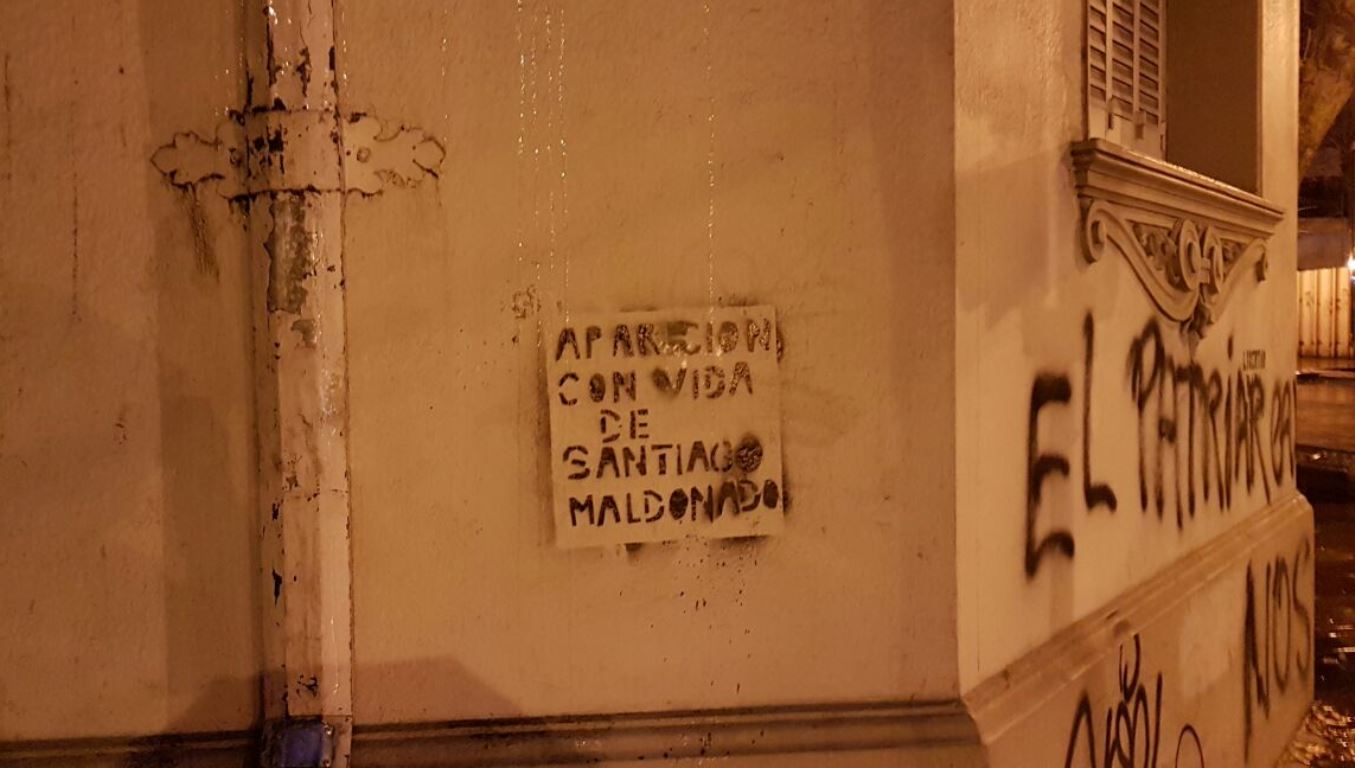 APARICION
CON VIDA
DE
SANTIAGO
MALDONADO
EL PATRIARCA
NOS